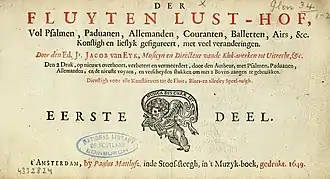 DER
FLUYTEN LUST-HOF,
Vol Psalmen, Paduanen, Allemanden, Couranten, Balletten, Airs, &c.
Konstigh en lieflyk gefigureert, met veel veranderingen.
Door den Ed. Jr. JACOB van EYK, Musicyn en Directeur vande Klok-werken tot Uitrecht, &c.
Den 2 Druk, op nieuws overhoort, verbetert en vermeerdert, door den Autheur, met Psalmen, Paduanen,
Allemanden, en de nieuste voysen, en verscheyden stukken om met 2 Boven-zangen te gebruikken.
Dienstigh voor alle Konst-lievers tot de Fluit, Blaes- en allerley Speel-tuigh.
EERSTE DEEL.
NATIONAL LIBRARY
OF SCOTLAND
EDINBURGH
t'AMSTERDAM, by Paulus Matthysz. inde Stoofsteegh, in't Muzyk-boek, gedrukt. 1649.
Glen 34